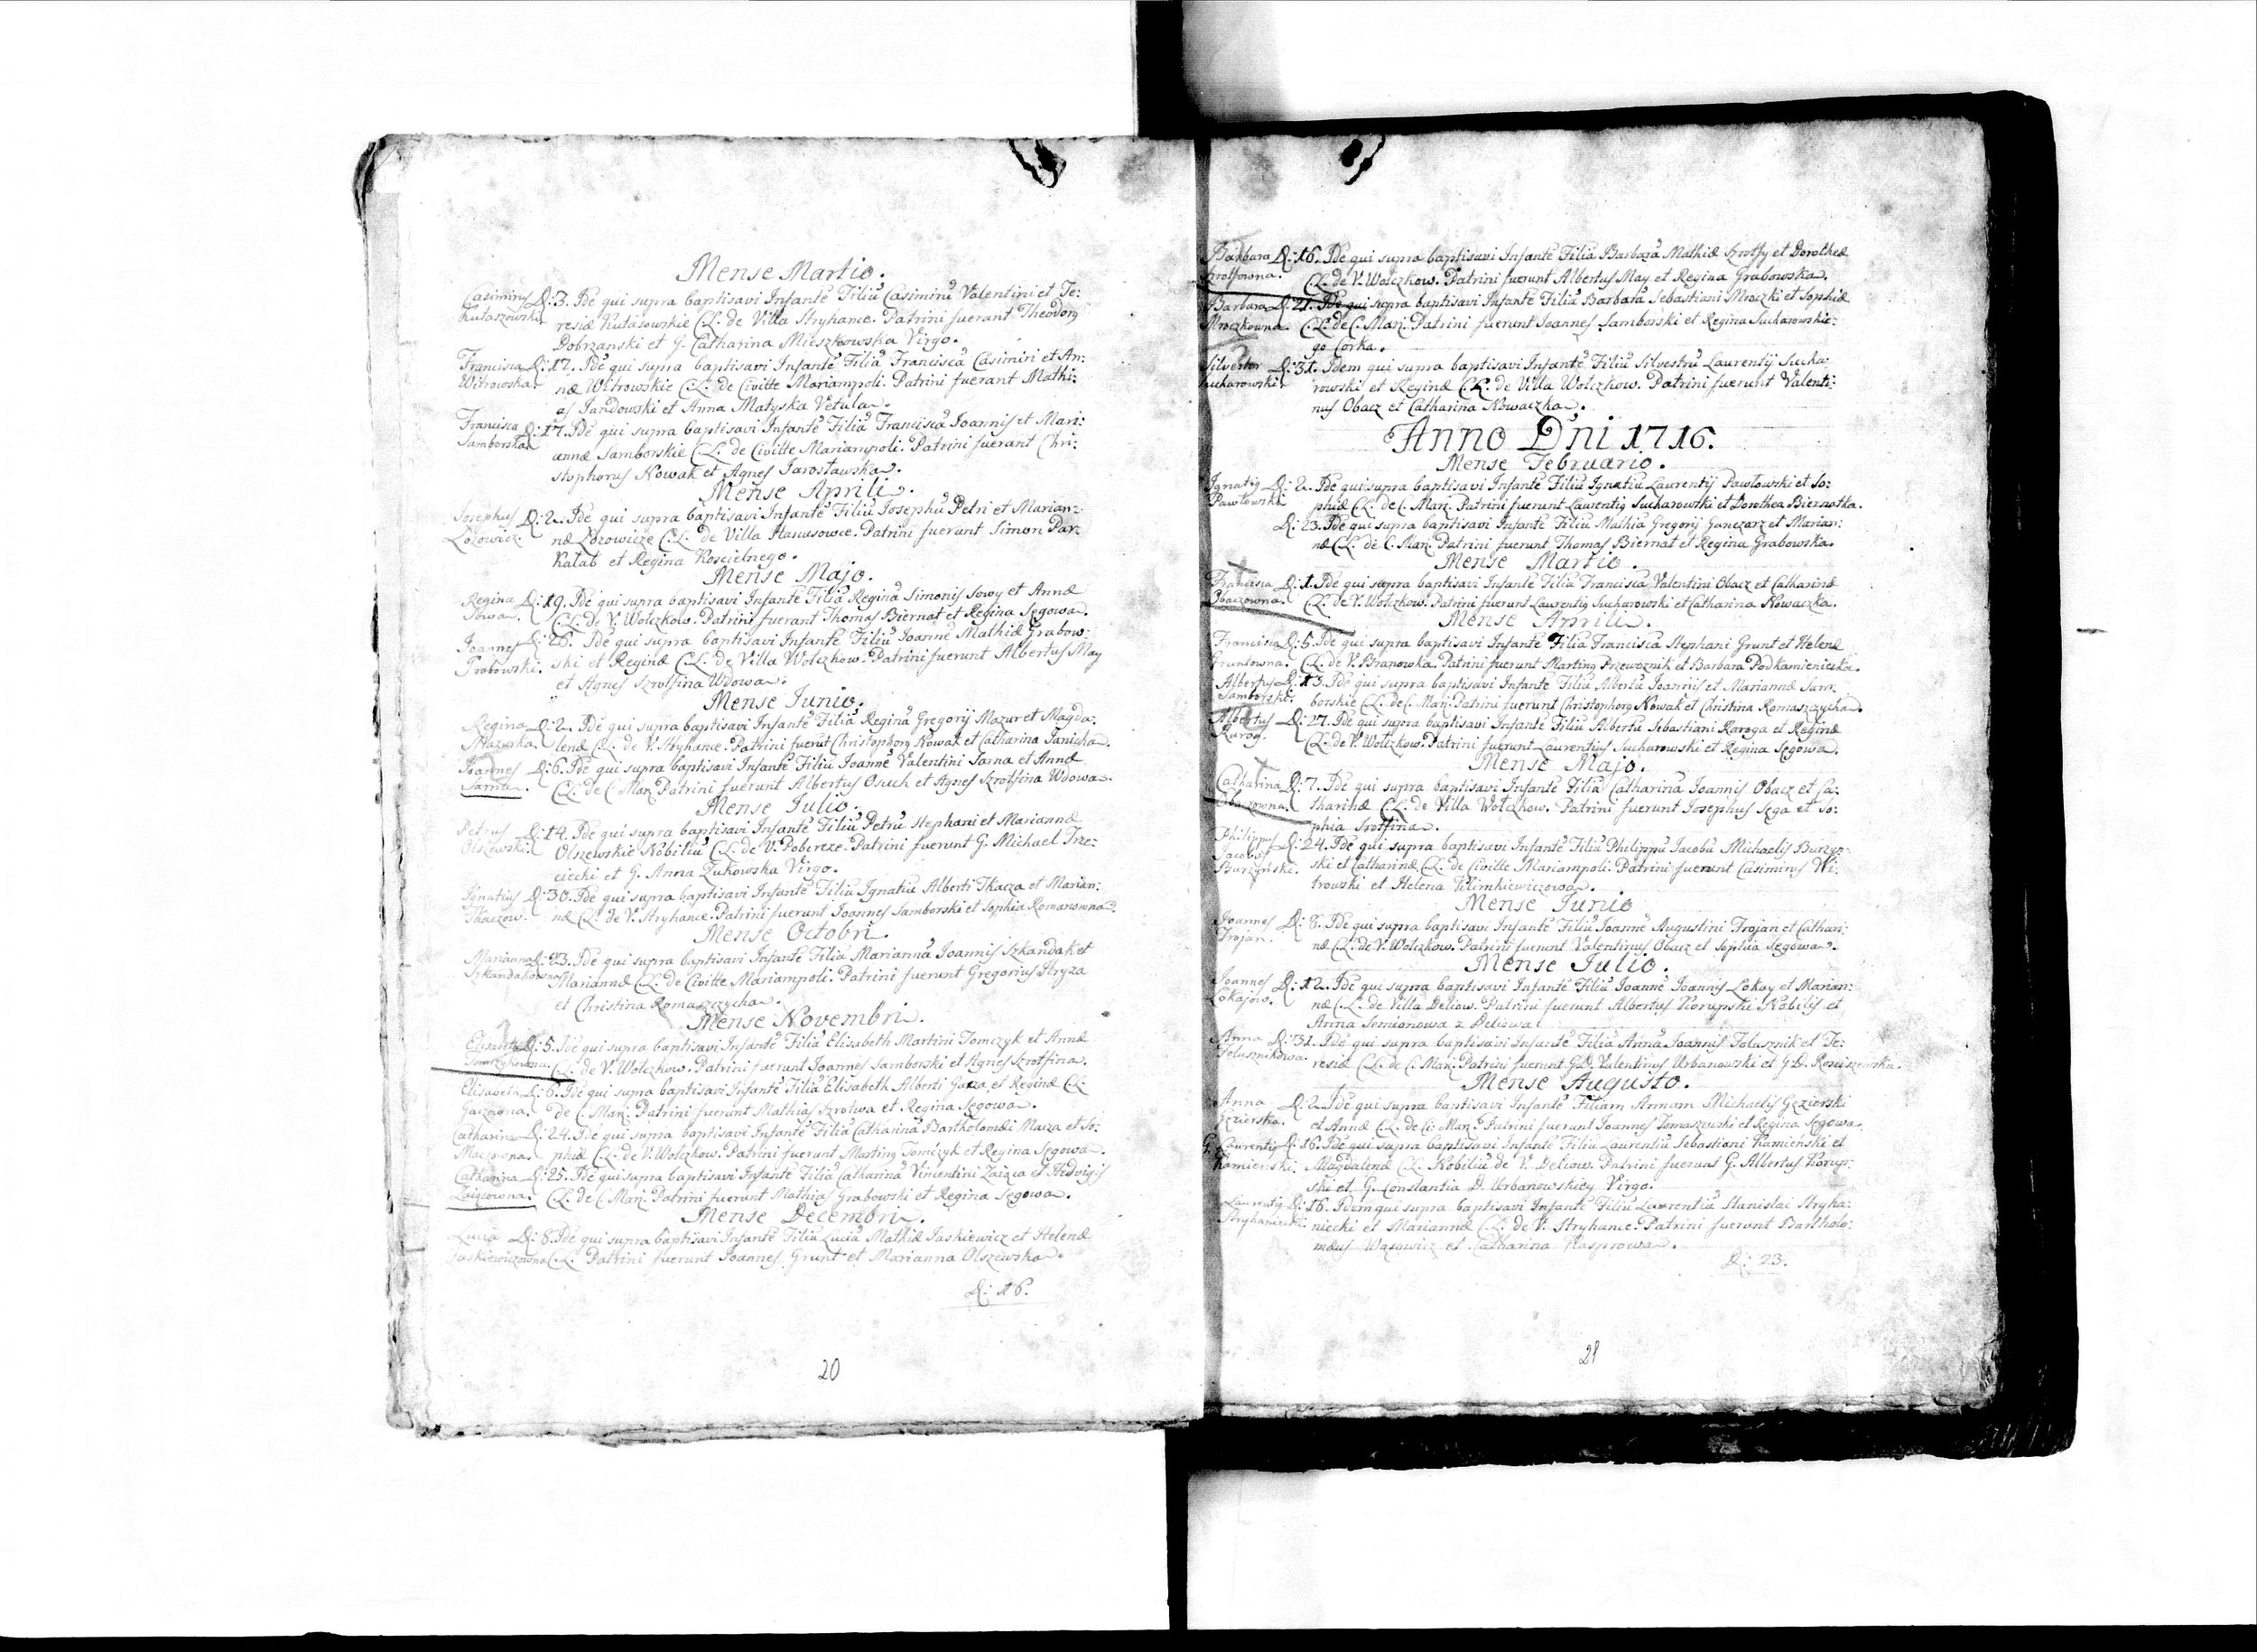 Mense Martio.
Casimirus D: 3. Ide qui supra baptisavi Infantē Filiū Casimirū Valentini et Te:
Kutaszowski resiæ Kutasowskie C.L. de Villa Stryhance. Patrini fuerant Theodorg
Dobrzanski et G. Catharina Mieszkowska Virgo.
Francisca D: 17. Ide qui supra baptisavi Infantē Filiā Franciscā Casimiri et An:
Witrowska næ Witrowskie C.L. de Civitte Mariampoli. Patrini fuerant Mathi:
as Jandowski et Anna Matyska Vetula.
Francisca D: 17. Ide qui supra baptisavi Infantē Filiā Franciscā Joannis et Mari:
Samborska annæ Samborskie C.L. de Civitte Mariampoli. Patrini fuerant Chri:
stophorus Nowak et Agnes Jarosławska.
Mense Aprili.
Josephus D: 2. Ide qui supra baptisavi Infantē Filiū Josephū Petri et Marian:
Lozowicz. næ Lozowicze C.L. de Villa Hanusowce. Patrini fuerant Simon Par:
kalab et Regina Koscielnego.
Mense Majo.
Regina D: 19. Ide qui supra baptisavi Infantē Filiā Reginā Simonis Sowy et Annæ
Sowa. C.L. de V. Wolczkow. Patrini fuerant Thomas Biernat et Regina Segowa.
Joannes D: 26. Ide qui supra baptisavi Infantē Filiū Joannē Mathiæ Grabow:
Grabowski. ski et Reginæ C.L. de Villa Wolczkow. Patrini fuerunt Albertus May
et Agnes Szrotfina Wdowa.
Mense Junio.
Regina D: 2. Ide qui supra baptisavi Infantē Filiā Reginā Gregorij Mazur et Magda:
Mazurka lenæ C.L. de V. Stryhance. Patrini fuerūt Christophorg Nowak et Catharina Janicha.
Joannes D: 6. Ide qui supra baptisavi Infantē Filiū Joannē Valentini Sarna et Annæ
Sarna. C.L. de C. Marj. Patrini fuerunt Albertus Osuch et Agnes Szrotfina Wdowa.
Mense Julio.
Petrus D: 14. Ide qui supra baptisavi Infantē Filiū Petrū Stephani et Mariannæ
Olszewski. Olszewskie Nobiliū C.L. de V. Pobereze. Patrini fuerunt G. Michael Trze:
ciecki et G. Anna Zukowska Virgo.
Ignatius D: 30. Ide qui supra baptisavi Infantē Filiū Ignatiū Alberti Tkacza et Marian:
Tkaczow. næ C.L. de V. Stryhance. Patrini fuerunt Joannes Samborski et Sophia Romanowna.
Mense Octobri.
Marianna D: 23. Ide qui supra baptisavi Infantē Filiā Mariannā Joannis Szkandak et
Szkandakowna Mariannæ C.L. de Civitte Mariampoli. Patrini fuerunt Gregorius Hryza
et Christina Romaszczycha.
Mense Novembri.
Elisabeth D: 5. Ide qui supra baptisavi Infantē Filiā Elisabeth Martini Tomczyk et Annæ
Tomczykowna. C.L. de V. Wolczkow. Patrini fuerunt Joannes Samborski et Agnes Szrotfina.
Elisabeta D: 6. Ide qui supra baptisavi Infantē Filiā Elisabeth Alberti Gaza et Reginæ C.L.
de C. Marj. Patrini fuerunt Mathias Szrotwa et Regina Segowa.
Catharina D: 24. Ide qui supra baptisavi Infantē Filiā Catharinā Bartholomæi Macza et So:
phiæ C.L. de V. Wolczkow. Patrini fuerunt Marting Tomczyk et Regina Segowa.
Catharina D: 25. Ide qui supra baptisavi Infantē Filiā Catharinā Vincentini Zaiąca et Hedvigis
Zaiącowna. C.L. de C. Marj. Patrini fuerunt Mathias Grabowski et Regina Segowa.
Mense Decembri.
Lucia D: 8. Ide qui supra baptisavi Infantē Filiā Luciā Mathiæ Jaskiewicz et Helenæ
Jaskiewiczowna C.L. Patrini fuerunt Joannes Grunt et Marianna Olszewska.
D: 16.
20
Barbara D: 16. Ide qui supra baptisavi Infantē Filiā Barbarā Mathiæ Szrotfy et Dorotheæ
Szrotfowna. C.L. de V. Wolczkow. Patrini fuerunt Albertus May et Regina Grabowska.
Barbara D: 21. Ide qui supra baptisavi Infantē Filiā Barbarā Sebastiani Mroczki et Sophiæ
Mroczkowna C.L. de C. Marj. Patrini fuerunt Joannes Samborski et Regina Sucharowskie:
go Corka.
Silvester D: 31. Idem qui supra baptisavi Infantē Filiū Silvestrū Laurentij Sucha:
Sucharowski rowski et Reginæ C.L. de Villa Wolczkow. Patrini fuerunt Valenti:
nus Obacz et Catharina Nowaczka.
Anno Dni 1716.
Mense Februario.
Ignatig D: 2. Ide qui supra baptisavi Infantē Filiū Ignatiū Laurentij Pawłowski et So:
Pawłowski phiæ C.L. de C. Marj. Patrini fuerunt Laurentig Sucharowski et Dorothea Biernatka.
D: 23. Ide qui supra baptisavi Infantē Filiū Mathiā Gregorij Ganczarz et Marian:
næ C.L. de C. Marj. Patrini fuerunt Thomas Biernat et Regina Grabowska.
Mense Martio.
Francisca D: 1. Ide qui supra baptisavi Infantē Filiā Franciscā Valentini Obacz et Catharinæ
Obaczowna. C.L. de V. Wolczkow. Patrini fuerunt Laurentig Sucharowski et Catharina Nowaczka.
Mense Aprili.
Francisca D: 5. Ide qui supra baptisavi Infantē Filiā Franciscā Stephani Grunt et Helenæ
Gruntowna. C.L. de V. Branowka. Patrini fuerunt Marting Przewoznik et Barbara Podkamieniecka.
Albertus D: 13. Ide qui supra baptisavi Infantē Filiū Albertū Joannis et Mariannæ Sam:
Samborski. borskie C.L. de C. Marj. Patrini fuerunt Christophorg Nowak et Christina Romaszczycha.
Albertus D: 27. Ide qui supra baptisavi Infantē Filiū Albertū Sebastiani Raroga et Reginæ
Rarog. C.L. de V. Wolczkow. Patrini fuerunt Laurentius Sucharowski et Regina Segowa.
Mense Majo.
Catharina D: 7. Ide qui supra baptisavi Infantē Filiā Catharinā Joannis Obacz et Ca:
Obaczowna. tharinæ C.L. de Villa Wolczkow. Patrini fuerunt Josephus Sęga et So:
phia Srotfina.
Philippus D: 24. Ide qui supra baptisavi Infantē Filiū Philippū Jacobū Michaelis Burzyn:
Jacobus ski et Catharinæ C.L. de Civitte Mariampoli. Patrini fuerunt Casimirus Wi:
Burzynski. trowski et Helena Klimkiewiczowa.
Mense Junio
Joannes D: 8. Ide qui supra baptisavi Infantē Filiū Joannē Augustini Trojan et Cathari:
Trojan. næ C.L. de V. Wolczkow. Patrini fuerunt Valentinus Obacz et Sophia Segowa.
Mense Julio.
Joannes D: 12. Ide qui supra baptisavi Infantē Filiū Joannē Joannis Lokay et Marian:
Lokajow. næ C.L. de Villa Deliow. Patrini fuerunt Albertus Korupski Nobilis et
Anna Semionowa z Deliowa.
Anna D: 31. Ide qui supra baptisavi Infantē Filiā Annā Joannis Folusznik et Te:
Folusznikowa. resiæ C.L. de C. Marj. Patrini fuerunt G.D. Valentinus Urbanowski et G.D. Rosciszewska.
Mense Augusto.
Anna D: 2. Ide qui supra baptisavi Infantē Filiam Annam Michaelis Gezierski
et Annæ C.L. de Ci: Marj. Patrini fuerunt Joannes Tomaszewski et Regina Segowa.
G. Laurentig D: 16. Ide qui supra baptisavi Infantē Filiū Laurentiū Sebastiani Kamieński et
Kamieński. Magdalenæ C.L. Nobiliū de V. Deliow. Patrini fuerunt G. Albertus Korup:
ski et G. Constantia D. Urbanowskiey Virgo.
Laurentig D: 16. Idem qui supra baptisavi Infantē Filiū Laurentiū Stanislai Stryha:
Stryhaniecki niecki et Mariannæ C.L. de V. Stryhance. Patrini fuerunt Bartholo:
mæus Wąsowicz et Catharina Kasprowa.
D: 23.
21